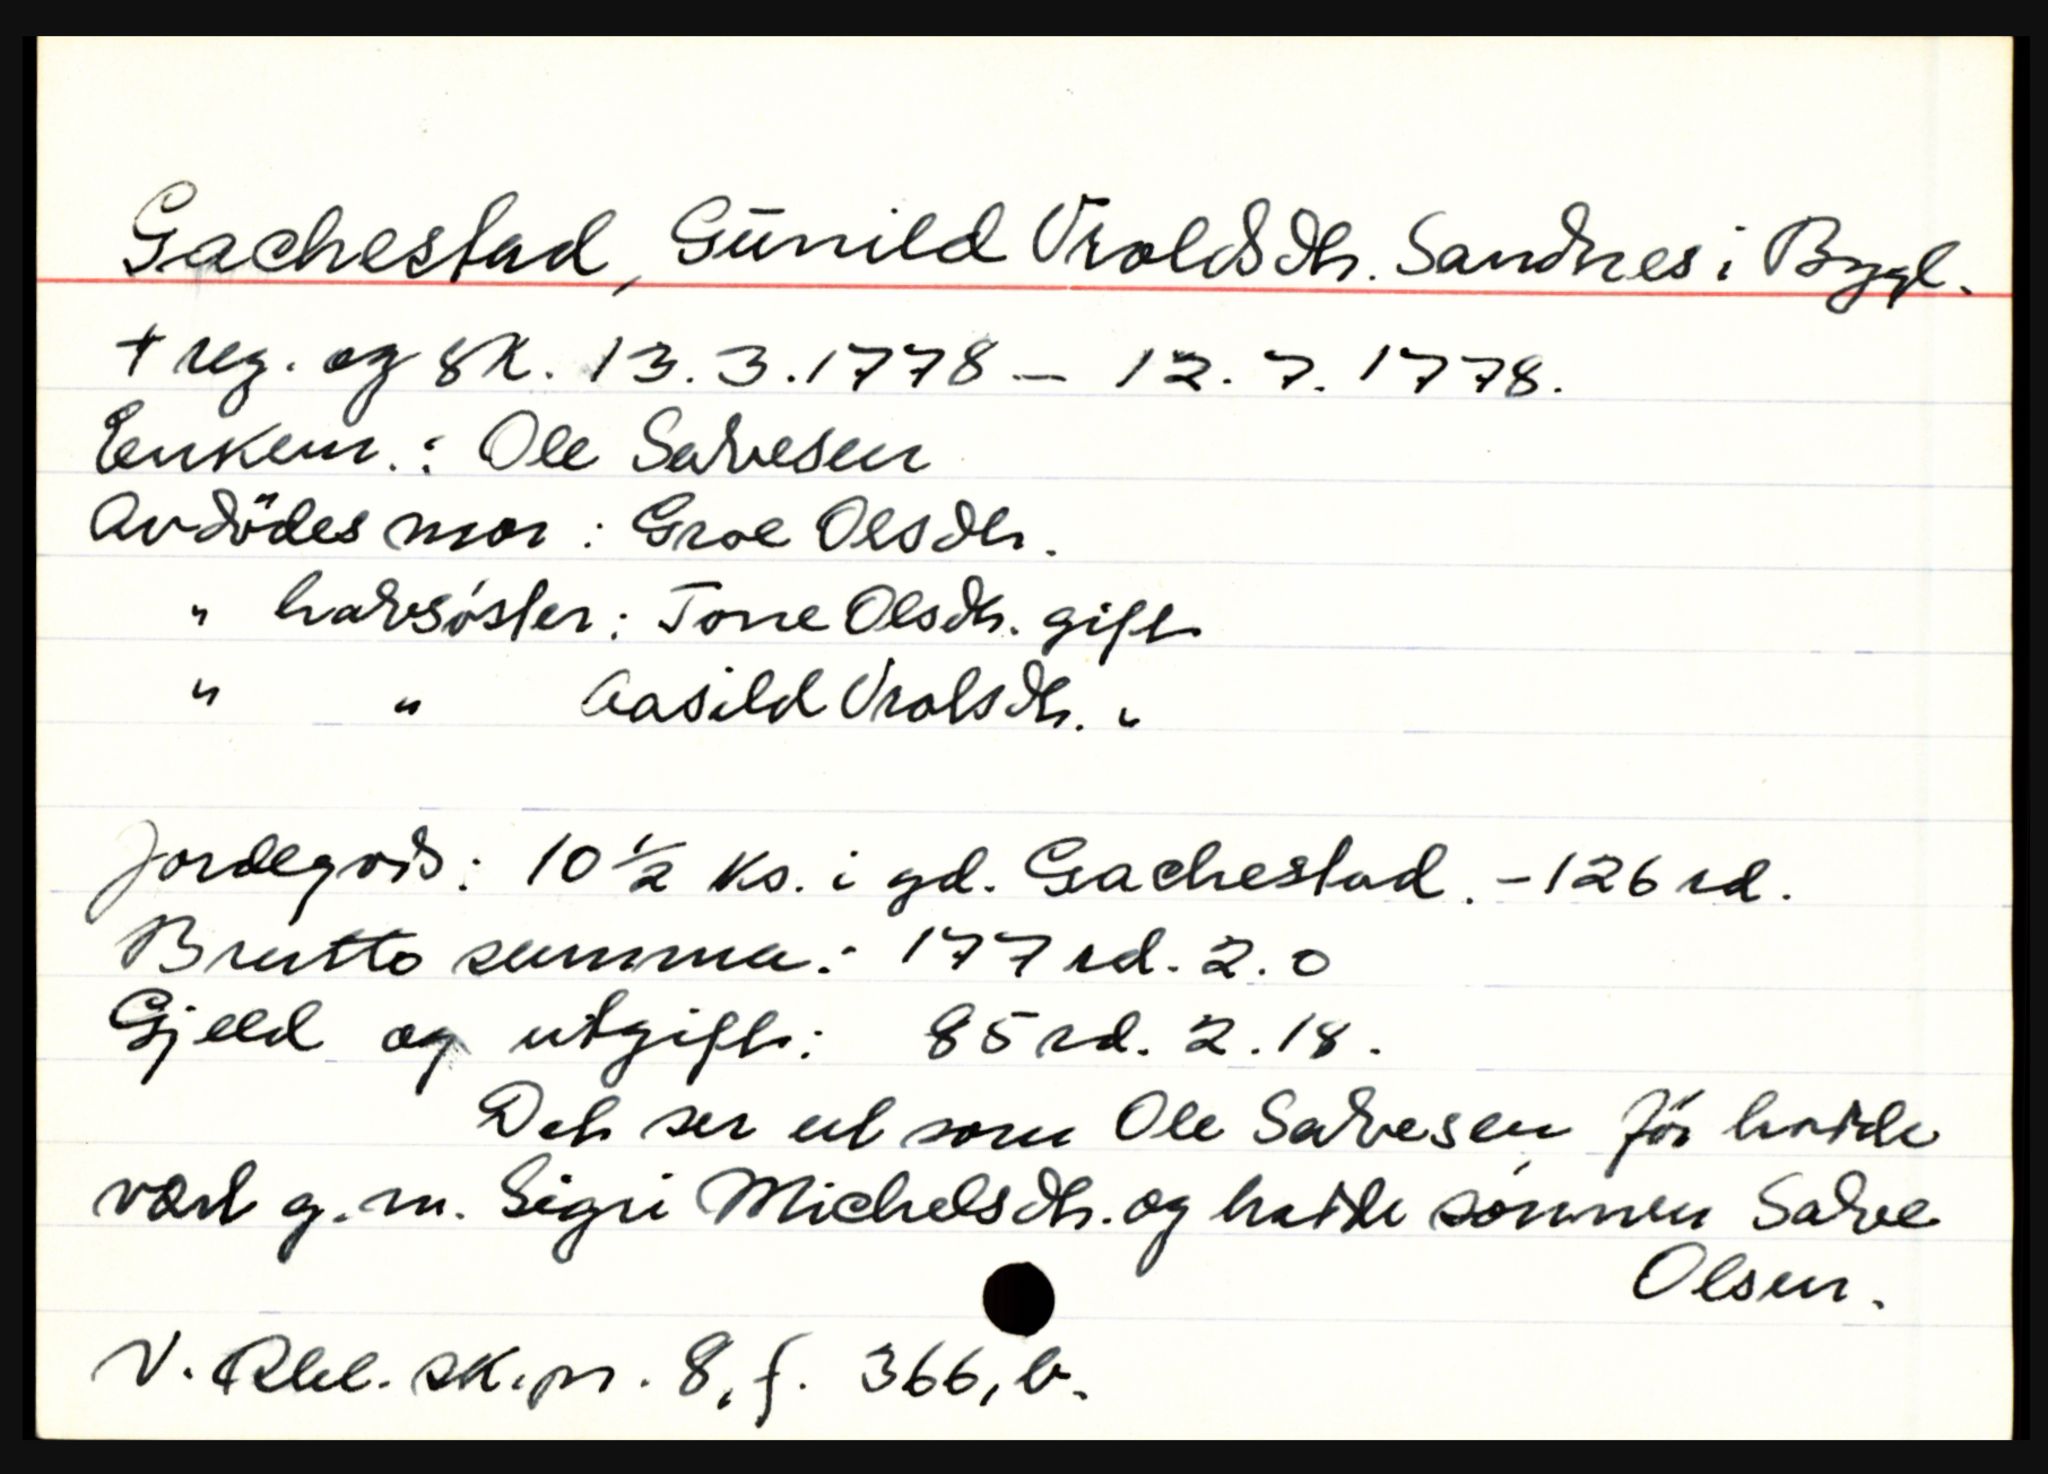 Gachestad, Gūnild Vroldsdtr. Sandnes i Bygl.
+ reg. og sk. 13.3.1778 – 12.7.1778.
Enkem.: Ole Salvesen
Avdödes mor: Groe Olsdtr.
" halvsöster: Tone Olsdtr. gift
" " Aasild Vrolsdtr. "
Jordegods: 10 1/2 ks. i gd. Gachestad. - 126 rd.
Brutto summa: 177 rd. 2. 0
Gjeld og utgift: 85 rd. 2. 18.
Det ser ut som Ole Salvesen för hadde
vært g. m. Sigri Michelsdtr. og hadde sönnen Salve
Olsen.
V. Rbl. sk. pr. 8, f. 366, b.